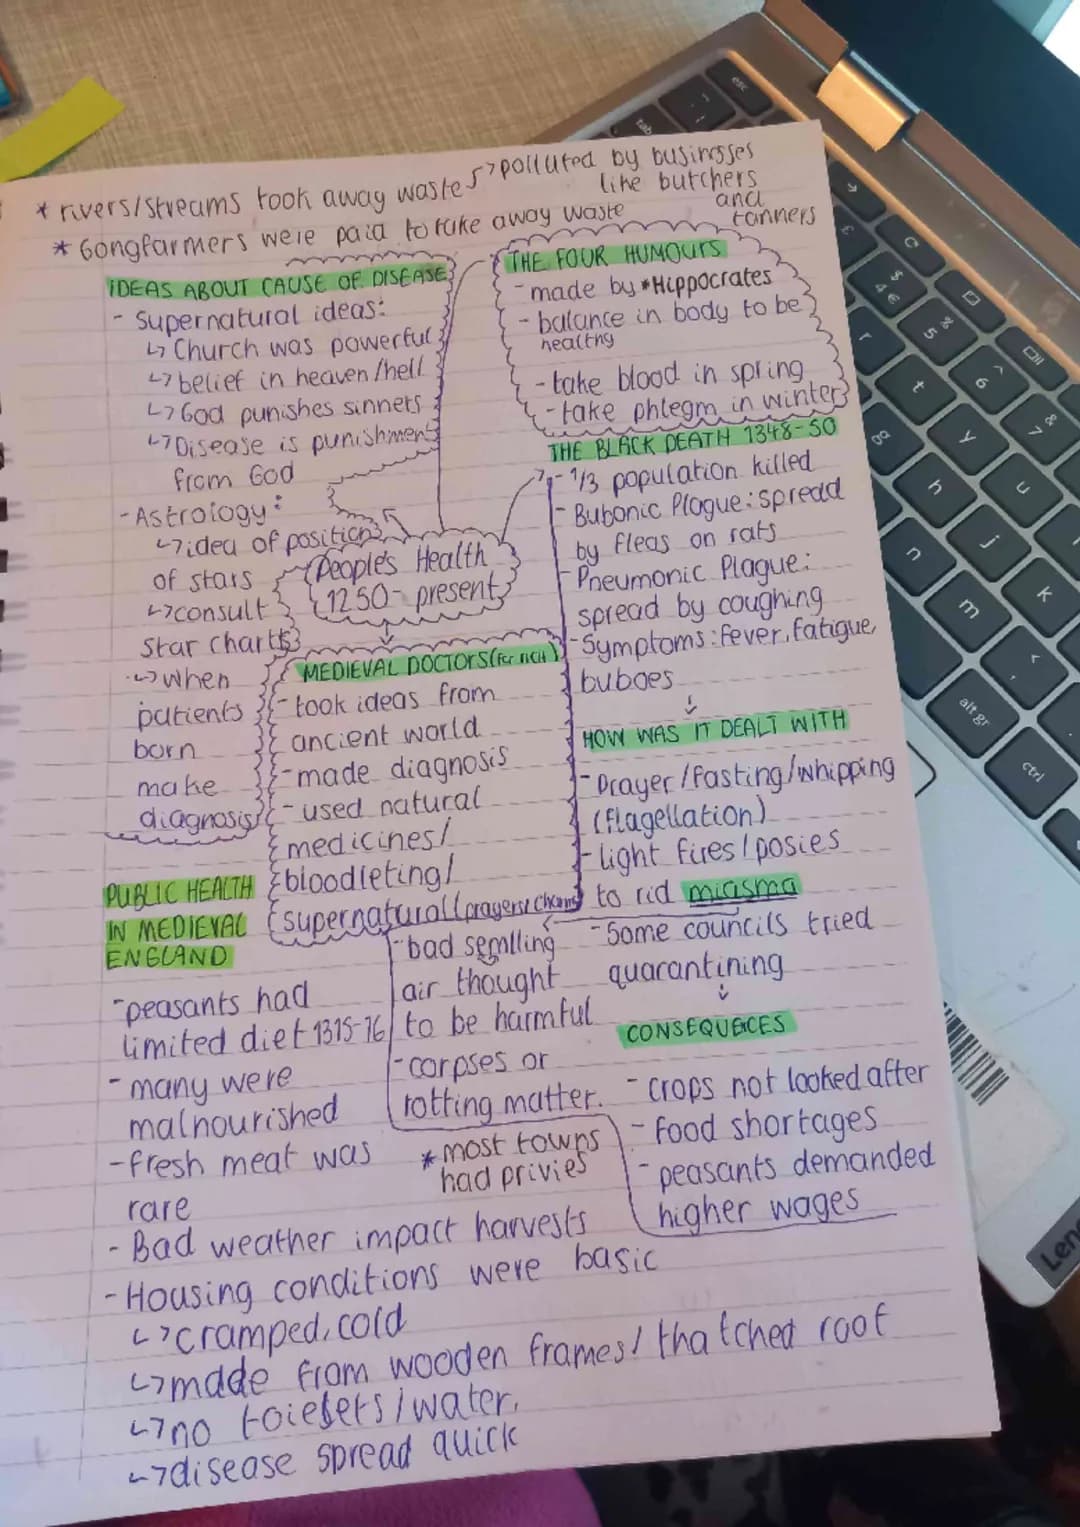 * rivers/streams took away waste ↳ polluted by businesses
like butchers
and
tanners
* Gongfarmers were paid to take away waste
IDEAS ABOUT CAUSE OF DISEASE
- Supernatural ideas:
↳ Church was powerful
↳ belief in heaven/hell
↳ God punishes sinners
↳ Disease is punishment
from God
- Astrology:
↳ idea of position
of stars
↳ consult
star charts
↳ when
patients
born
make
diagnosis
THE FOUR HUMOURS
- made by *Hippocrates
- balance in body to be
healthy
- take blood in spring
- take phlegm in winter
People's Health
1250- present
THE BLACK DEATH 1348-50
- 1/3 population killed
- Bubonic Plague: spread
by fleas on rats
- Pneumonic Plague:
spread by coughing
- Symptoms: fever, fatigue,
buboes
HOW WAS IT DEALT WITH
- Prayer/fasting/whipping
(flagellation)
- light fires/posies
to rid miasma
- Some councils tried
quarantining
CONSEQUENCES
- crops not looked after
- food shortages
- peasants demanded
higher wages
MEDIEVAL DOCTORS (for rich)
- took ideas from
ancient world
- made diagnosis
- used natural
medicines/
bloodletting/
supernatural (prayers/charms)
- bad semlling
air thought
to be harmful
- corpses or
rotting matter.
* most towns
had privies
PUBLIC HEALTH
IN MEDIEVAL
ENGLAND
- peasants had
limited diet 1315-16
- many were
malnourished
- fresh meat was
rare
- Bad weather impact harvests
- Housing conditions were basic
↳ cramped, cold
↳ made from wooden frames/ thatched roof
↳ no toielets/water.
↳ disease spread quick
esc
tab
r
t
y
u
h
j
k
n
m
alt gr
ctrl
$
4 €
%
5
^
6
&
7
Len